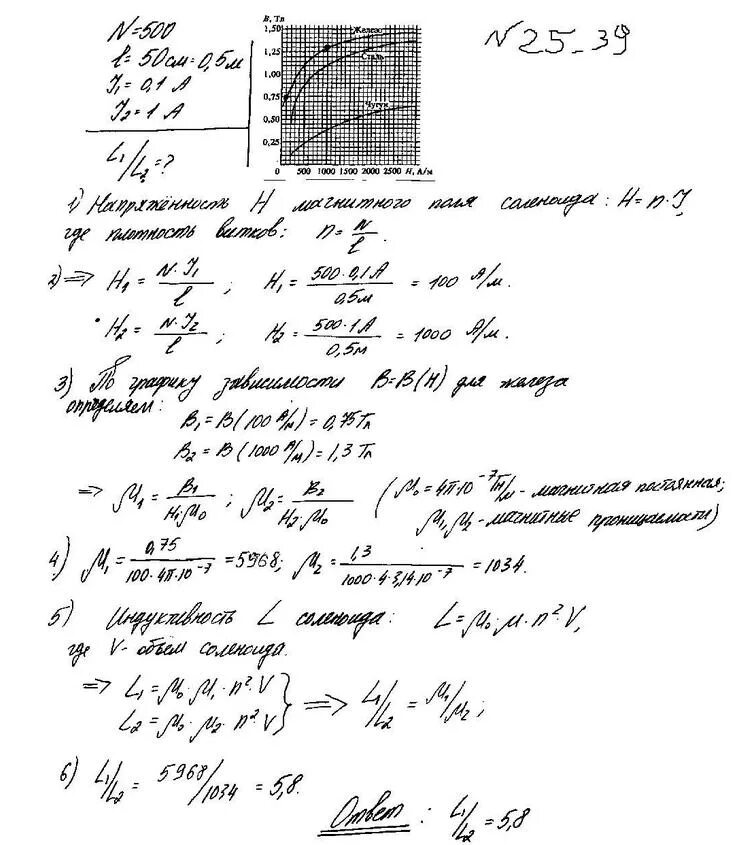 N=500
ℓ=50см=0,5м
J₁=0,1 А
J₂=1 А
L₁/L₂=?
B, Тл
1,50
1,25
1,00
0,75
0,50
0,25
0
Железо
Сталь
Чугун
500 1000 1500 2000 2500 H, А/м
N 25_39
1) Напряжённость H магнитного поля соленоида: H=n·J,
где плотность витков: n=N/ℓ.
2) ⇒ H₁=N·J₁/ℓ; H₁=500·0,1А/0,5м=100 А/м.
H₂=N·J₂/ℓ; H₂=500·1А/0,5м=1000 А/м.
3) По графику зависимости B=B(H) для железа
определяем:
B₁=B(100 А/м)=0,75Тл
B₂=B(1000 А/м)=1,3Тл
⇒ μ₁=B₁/H₁·μ₀; μ₂=B₂/H₂·μ₀ (μ₀=4π·10⁻⁷Гн/м-магнитная постоянная;
μ₁,μ₂-магнитные проницаемости)
4) μ₁=0,75/100·4π·10⁻⁷=5968; μ₂=1,3/1000·4·3,14·10⁻⁷=1034.
5) Индуктивность L соленоида: L=μ₀·μ·n²·V,
где V-объём соленоида.
⇒ L₁=μ₀·μ₁·n²·V
L₂=μ₀·μ₂·n²·V } ⇒ L₁/L₂=μ₁/μ₂;
6) L₁/L₂=5968/1034=5,8.
Ответ: L₁/L₂=5,8